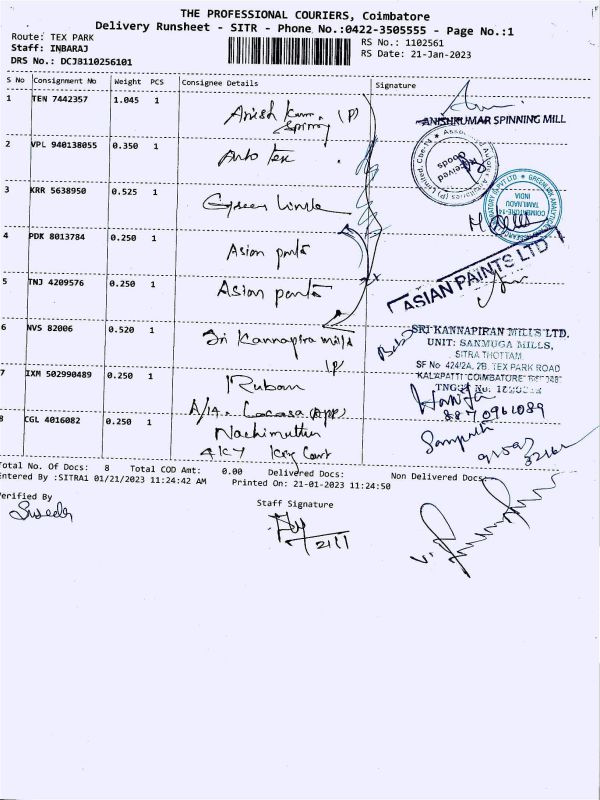 THE PROFESSIONAL COURIERS, Coimbatore
Delivery Runsheet - SITR - Phone No.:0422-3505555 - Page No.:1
Route: TEX PARK
RS No.: 1102561
Staff: INBARAJ
RS Date: 21-Jan-2023
DRS No.: DCJB110256101
S No Consignment No Weight PCS Consignee Details Signature
1 TEN 7442357 1.045 1 Anish Kumar (P)
Spinning
ANISHKUMAR SPINNING MILL
2 VPL 940138055 0.350 1 Auto Tex
Received Goods
3 KRR 5638950 0.525 1 Green
COIMBATORE-14
TAMILNADU
INDIA
4 PDK 8013784 0.250 1 Asian
ASIAN PAINTS LTD
5 TNJ 4209576 0.250 1 Asian
6 NVS 82006 0.520 1 Sri Kannapira mills
(P)
SRI KANNAPIRAN MILLS LTD.
UNIT: SANMUGA MILLS,
SITRA THOTTAM
SF No 424/2A, 2B, TEX PARK ROAD
KALAPATTI COIMBATORE
TNGST No:
7 IXM 502990489 0.250 1 Ruban
8870961089
8 CGL 4016082 0.250 1 Nachimuthu
Sampath
Total No. Of Docs: 8 Total COD Amt: 0.00 Delivered Docs: Non Delivered Docs:
Entered By :SITRA1 01/21/2023 11:24:42 AM Printed On: 21-01-2023 11:24:50
Verified By
Staff Signature
21/1